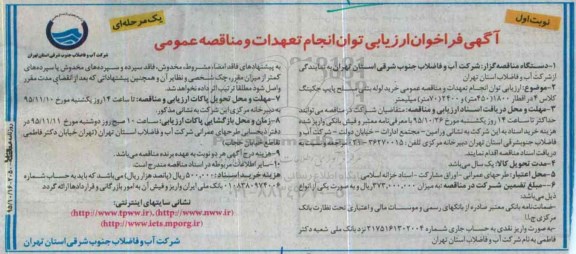 نوبت اول
یک مرحله‌ای
آگهی فراخوان ارزیابی توان انجام تعهدات و مناقصه عمومی
شرکت آب و فاضلاب جنوب شرقی استان تهران
۱-دستگاه مناقصه‌گزار: شرکت آب و فاضلاب جنوب شرقی استان تهران به نمایندگی
از شرکت آب و فاضلاب استان تهران
۲-موضوع: ارزیابی توان انجام تعهدات و مناقصه عمومی خرید لوله بتنی مسلح پایپ جکینگ
۳-مهلت و محل دریافت اسناد ارزیابی و مناقصه: متقاضیان شرکت در مناقصه می‌توانند
حداکثر تا ساعت ۱۴ روز یکشنبه مورخ ۹۵/۱۰/۲۶ با معرفی‌نامه معتبر و فیش بانکی واریز شده
هزینه خرید اسناد به این شرکت به نشانی ورامین-مجتمع ادارات - خیابان دولت - شرکت آب و
فاضلاب جنوب‌شرقی استان تهران دبیرخانه مرکزی تلفن: ۳۶۲۷۰۰۱۵-۰۲۱ برای خرید و
دریافت اسناد مناقصه اقدام نمایند.
۴-مدت تحویل کالا: یک سال می‌باشد
۵-محل اعتبار: طرحهای عمرانی -اوراق مشارکت - اسناد خزانه اسلامی
۶-مبلغ تضمین شرکت در مناقصه: به میزان ۳۷۳,۰۰۰,۰۰۰ ریال و به صورت یکی از انواع
ذیل می‌باشد:
-ضمانت‌نامه بانکی معتبر صادره از بانکهای رسمی و موسسات مالی و اعتباری تحت نظارت بانک
مرکزی ج.ا.ا
-به صورت واریز نقدی به حساب جاری شماره ۲۱۷۵۱۶۱۳۰۲۰۰۴ نزد بانک ملی شعبه دکتر
فاطمی به نام شرکت آب و فاضلاب استان تهران
به پیشنهادهای فاقد امضا، مشروط، مخدوش، فاقد سپرده و سپرده‌های مخدوش یا سپرده‌های
کمتر از میزان مقرر، چک شخصی و نظایر آن و همچنین پیشنهاداتی که بعد از انقضای مدت مقرر
واصل شود مطلقا ترتیب اثر داده نخواهد شد.
۷-مهلت و محل تحویل پاکات ارزیابی و مناقصه: تا ساعت ۱۴ روز یکشنبه مورخ ۹۵/۱۱/۱۰
دبیرخانه مرکزی این شرکت به نشانی مذکور
۸-زمان و محل بازگشایی پاکات ارزیابی: ساعت ۱۰ صبح روز دوشنبه مورخ ۹۵/۱۱/۱۱ در
دفتر ذیحسابی طرحهای عمرانی شرکت آب و فاضلاب استان تهران (تهران خیابان دکتر فاطمی
تقاطع خیابان حجاب)
۹-هزینه درج آگهی هر دو نوبت به عهده برنده مناقصه می‌باشد.
۱۰-سایر اطلاعات مربوطه در اسناد مناقصه مندرج است
هزینه خرید اسناد: ۵۰۰,۰۰۰ ریال (پانصد هزار ریال) می‌باشد که باید به حساب شماره
بانک ملی ایران واریز و فیش آن به امور بازرگانی و قراردادها ارائه گردد
نشانی سایتهای اینترنتی:
(http://www.tpww.ir), (http://www.nww.ir)
(http://www.iets.mporg.ir)
شرکت آب و فاضلاب جنوب شرقی استان تهران